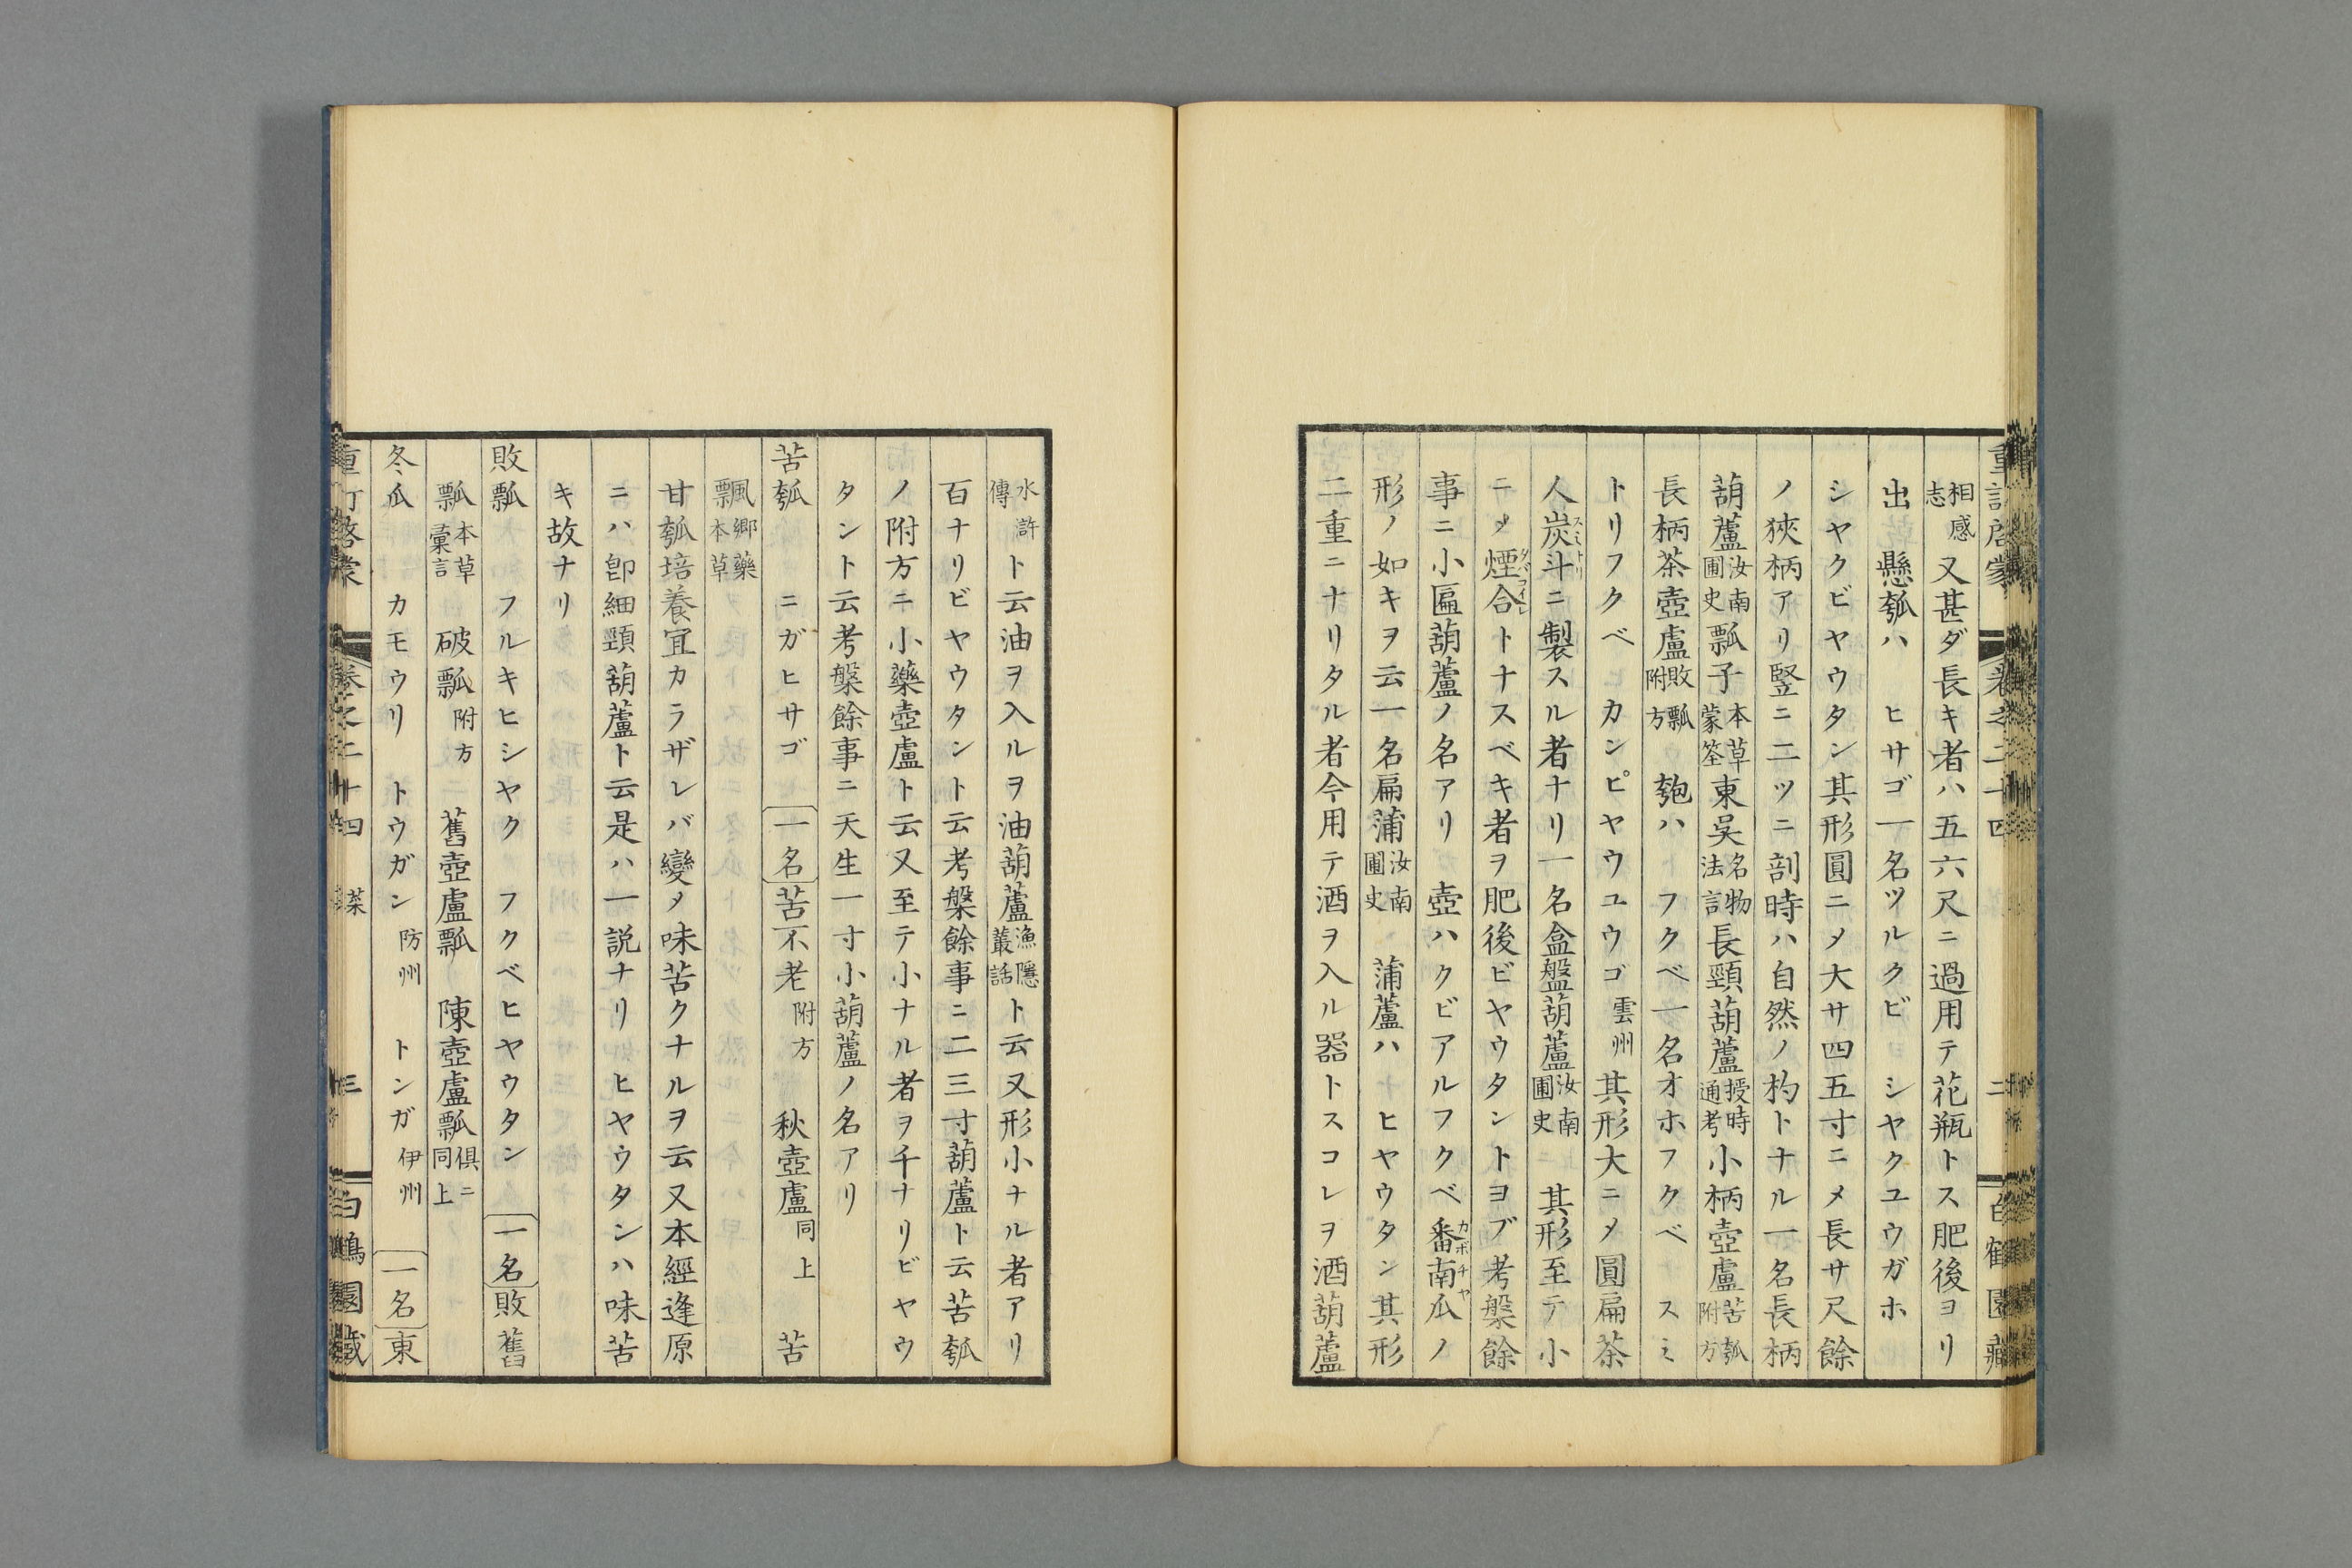 相感志又甚ダ長キ者ハ五六尺ニ過用テ花瓶トス肥後ヨリ
出 懸瓠ハ ヒサゴ一名ツルクビ シヤクユウガホ
シヤクビヤウタン其形圓ニメ大サ四五寸ニメ長サ尺餘
ノ狹柄アリ竪ニ二ツニ剖時ハ自然ノ杓トナル一名長柄
葫蘆汝南圃史瓢子本草蒙筌東吳名物法言長頸葫蘆授時通考小柄壺盧苦瓠附方
長柄茶壺盧敗瓢附方 匏ハ フクベ一名オホフクベ スミ
トリフクベ カンピヤウユウゴ雲州其形大ニメ圓扁茶
人炭斗スミトリニ製スル者ナリ一名盒盤葫蘆汝南圃史 其形至テ小
ニメ煙合トナスベキ者ヲ肥後ビヤウタントヨブ考槃餘
事ニ小匾葫蘆ノ名アリ 壺ハクビアルフクベ番南瓜カボチヤノ
形ノ如キヲ云一名扁蒲汝南圃史 蒲蘆ハ ヒヤウタン其形
二重ニナリタル者今用テ酒ヲ入ル器トスコレヲ酒葫蘆
水許傳ト云油ヲ入ルヲ油葫蘆漁隱叢話ト云又形小ナル者アリ
百ナリビヤウタント云考槃餘事ニ二三寸葫蘆ト云苦瓠
ノ附方ニ小藥壺盧ト云又至テ小ナル者ヲ千ナリビヤウ
タント云考槃餘事ニ天生一寸小葫蘆ノ名アリ
苦瓠 ニガヒサゴ 一名苦不老附方 秋壺盧同上 苦
瓢鄉藥本草
甘瓠培養宜カラザレバ變メ味苦クナルヲ云又本經逢原
ニハ卽細頸葫蘆ト云是ハ一說ナリヒヤウタンハ味苦
キ故ナリ
敗瓢 フルキヒシヤク フクベヒヤウタン 一名敗舊
瓢本草彙言 破瓢附方 舊壺盧瓢 陳壺盧瓢俱ニ同上
冬瓜 カモウリ トウガン防州 トンガ伊州 一名東
重訂啓蒙 卷之二十四 二 白鶴園藏
重訂啓蒙 卷之二十四 菜 三 白鶴園藏